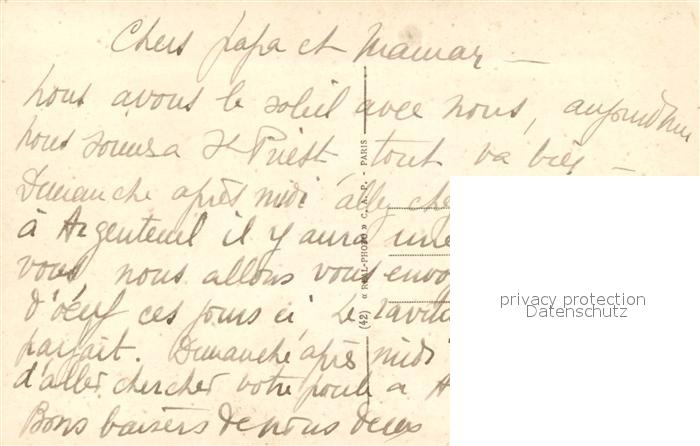 Chers papa et Maman —
nous avons le soleil avec nous, aujourd'hui
nous sommes a St Priest tout va bien —
Dimanche après midi aller
à Argenteuil il y aura une
vous, nous allons vous
d'œuf ces jours ci, Le
parfait. Dimanche après midi
d'aller chercher votre poule a
Bons baisers de nous deux
(42) « REAL-PHOTO » C. A. P. - PARIS
privacy protection
Datenschutz